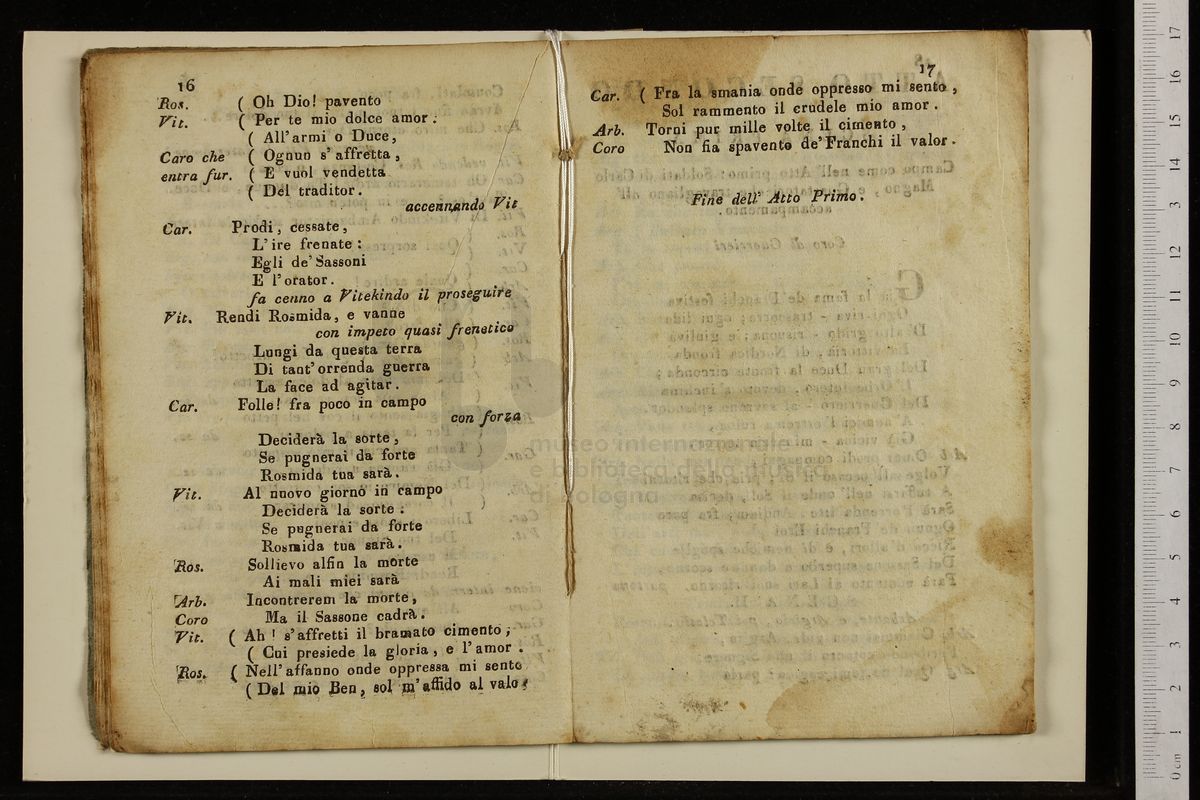 16
Ros. ( Oh Dio! pavento
Vit. ( Per te mio dolce amor:
( All'armi o Duce,
Caro che ( Ognun s'affretta,
entra fur. ( E vuol vendetta
( Del traditor.
accennando Vit
Car. Prodi, cessate,
L'ire frenate:
Egli de' Sassoni
E l'orator.
fa cenno a Vitekindo il proseguire
Vit. Rendi Rosmida, e vanne
con impeto quasi frenetico
Lungi da questa terra
Di tant'orrenda guerra
La face ad agitar.
Car. Folle! fra poco in campo
con forza
Deciderà la sorte,
Se pugnerai da forte
Rosmida tua sarà.
Vit. Al nuovo giorno in campo
Deciderà la sorte:
Se pugnerai da forte
Rosmida tua sarà.
Ros. Sollievo alfin la morte
Ai mali miei sarà
Arb. Incontrerem la morte,
Coro Ma il Sassone cadrà.
Vit. ( Ah! s'affretti il bramato cimento;
( Cui presiede la gloria, e l'amor.
Ros. ( Nell'affanno onde oppressa mi sento
( Del mio Ben, sol m'affido al valor
17
Car. ( Fra la smania onde oppresso mi sento,
Sol rammento il crudele mio amor.
Arb. Torni pur mille volte il cimento,
Coro Non fia spavento de' Franchi il valor.
Fine dell' Atto Primo.
museo internazionale
e biblioteca della musica
di bologna
0 cm 1 2 3 4 5 6 7 8 9 10 11 12 13 14 15 16 17